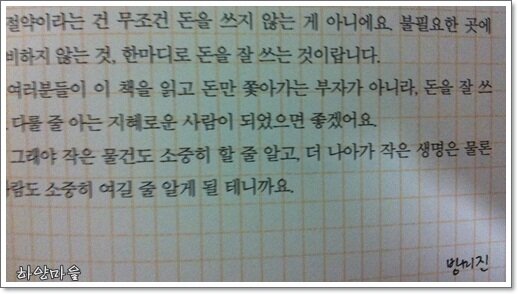 절약이라는 건 무조건 돈을 쓰지 않는 게 아니에요. 불필요한 곳에
비하지 않는 것, 한마디로 돈을 잘 쓰는 것이랍니다.
여러분들이 이 책을 읽고 돈만 쫓아가는 부자가 아니라, 돈을 잘 쓰
다룰 줄 아는 지혜로운 사람이 되었으면 좋겠어요.
그래야 작은 물건도 소중히 할 줄 알고, 더 나아가 작은 생명은 물론
람도 소중히 여길 줄 알게 될 테니까요.
방미진
하얀마을